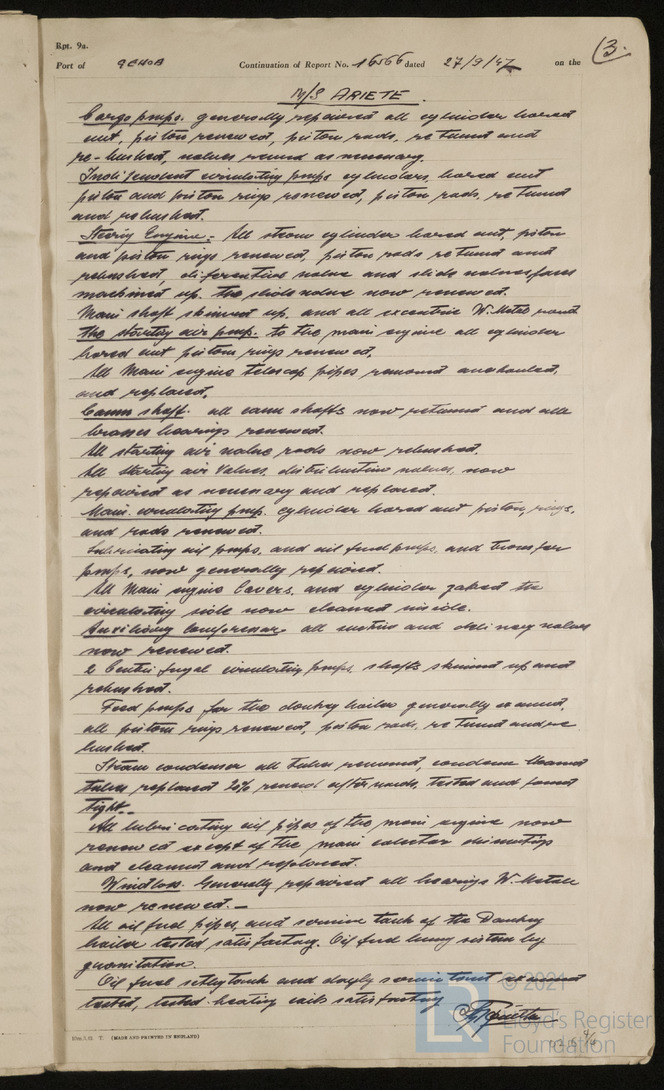 Rpt. 9a.
(3.
Port of GENOA Continuation of Report No. 16566 dated 27/9/47 on the
M/S ARIETE.
Cargo pmps. generally repaired all cylinder bored
out, piston renewed, piston rods, returned and
re-bushed, valves renewed as necessary.
Independent circulating pmps cylinders, bored out
piston and piston rings renewed, piston rods, returned
and rebushed.
Steerig Engine:- All steam cylinder bored out, piston
and piston rings renewed, piston rods returned and
rebushed, diferential valve and slide valves faces
machined up. the slide valve now renewed.
Main shaft skimmed up. and all excentric W. Metal
the starting air pmp. to the main engine all cylinder
bored out piston rings renewed.
All Main engine telescop pipes removed overhauled,
and replaced.
Camm shaft. all camm shafts now returned and all
brasses bearings renewed.
All starting air valve rods now rebushed.
All Starting air Valves, distribution valves, now
repaired as necessary and replaced.
Main. circulating pmp. cylinder bored out piston, rings,
and rods renewed.
Lubricating oil pmps, and oil fuel pmps, and transfer
pmps, now generally repaired.
All Main engine Covers, and cylinder jaked the
circulating side now cleaned inside.
Auxiliary Compressor all suction and delivery valves
now renewed.
2 Centrifugal circulating pmps. shafts skimed up and
rebushed.
Feed pmps for the donkey boiler generally examed,
all piston rings renewed, piston rods, returned and re
bushed.
Steam condenser all tubes removed, condenser cleaned
tubes replaced 20% renewed afterwards, tested and found
tight.-
All lubricating oil pipes of the main engine now
renewed except of the main
and cleaned and replaced.
Windlass. Generally repaired all bearings W. Metall
now renewed.-
All oil fuel pipes, and service tank of the Donkey
boiler tested satisfactory. Oil fuel by
gravitation.
Oil fuel setling tank and dayly service tank examined
tested, tested heating coils satisfactory
10m.3.32. T. (MADE AND PRINTED IN ENGLAND)
© 2021
Lloyd's Register
Foundation